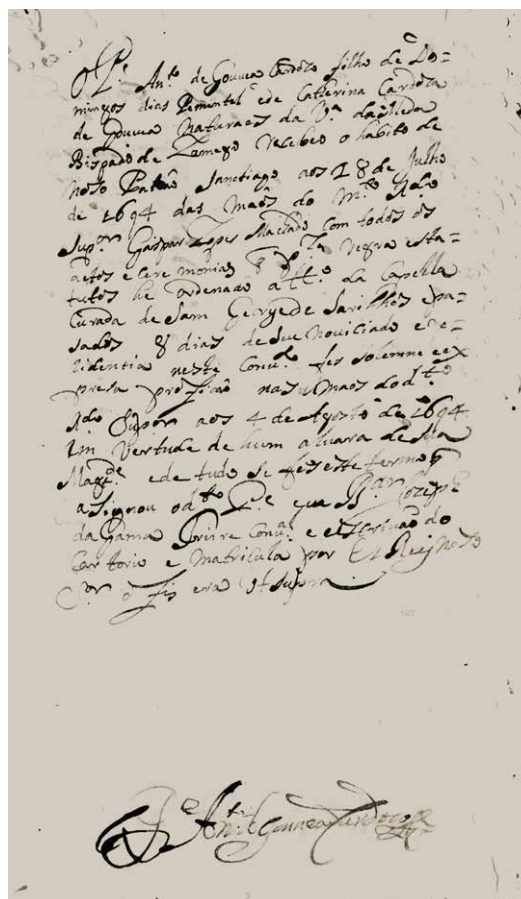 O P.e Ant.o de Gouvea Cardozo filho de Do=
mingos dias Pimentel e de Catherina Cardoza
de Gouvea Naturaes da V.a da
Bispado de Lamego recebeo o habito de
noso Patrão Sanctiago aos 18 de Julho
de 1694 das maos do m.to R.do
Sup.or Gaspar Lopes Machado com todos os
actos e Ceremonias q regra esta=
tutos he ordenado a tt.o da Capella
Curada de Sam George de Sarilhos e pa=
sados 8 dias de seu noviciado e re=
zidentia neste Conv.to fes solemne e ex
presa profição nas maos do d.to
R.do Supor aos 4 de Agosto de 1694
em vertude de hum alvara de Sua
Mag.de e de tudo se fes este termo q
asignou o d.to P.e Jozeph
da Gama freire e escrivão do
Cartorio e Matricula por El Rey noso
S.or o fis era ut supra
P.e Ant.o de Gouvea Cardozo